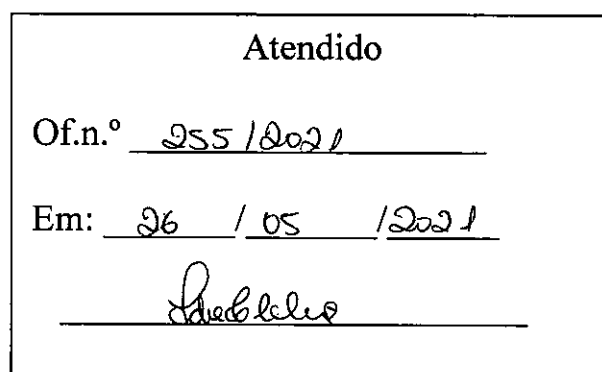 Atendido
Of.n.º 255/2021
Em: 26/05/2021